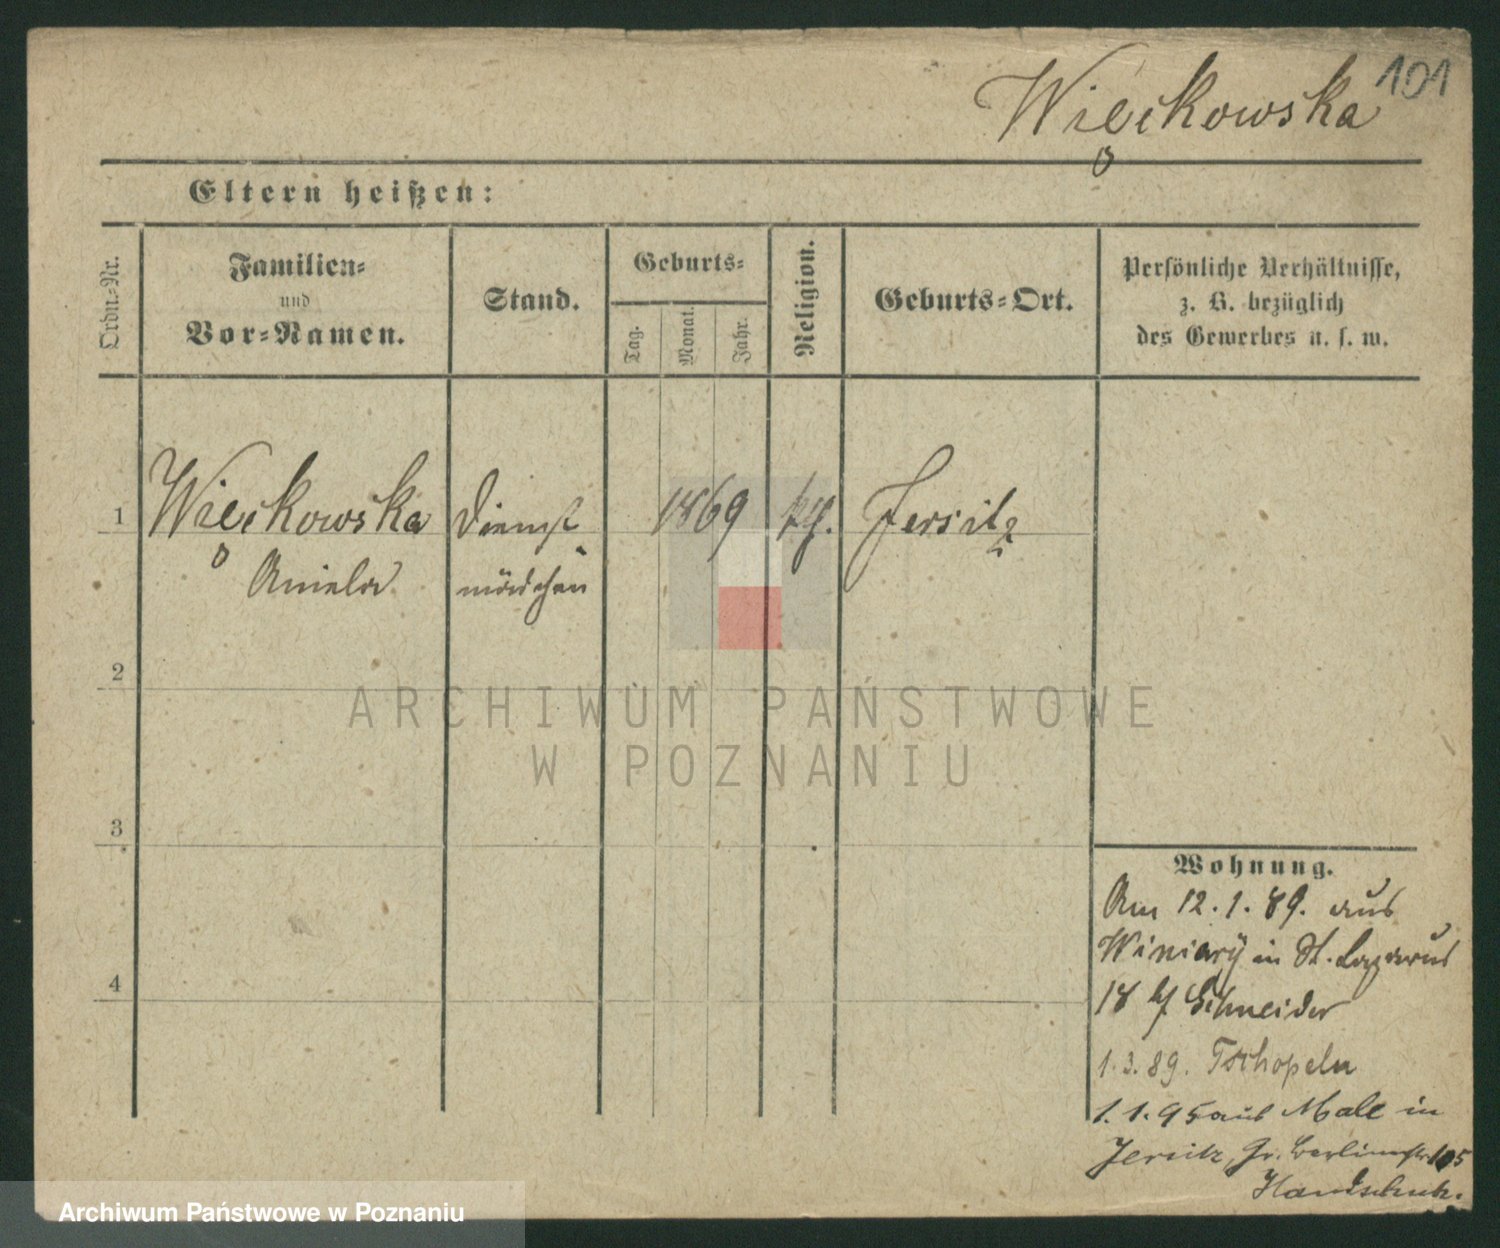 101
Więckowska
Eltern heißen:
Ordn.-Nr.
Familien-
und
Vor-Namen.
Stand.
Geburts-
Tag.
Monat.
Jahr.
Religion.
Geburts-Ort.
Persönliche Verhältnisse,
z. B. bezüglich
des Gewerbes u. s. w.
1 Więckowska Dienst 1869 kth. Jersitz
Aniela mädchen
2
ARCHIWUM PAŃSTWOWE
W POZNANIU
3
4
Wohnung.
Am 12.1.89. aus
Winiary in St. Lazarus
18 b/ Schneider
1.3.89. Tschapeln
1.1.95 aus Male in
Jersitz, Gr. Berlinerstr. 105
Handschuh.
Archiwum Państwowe w Poznaniu